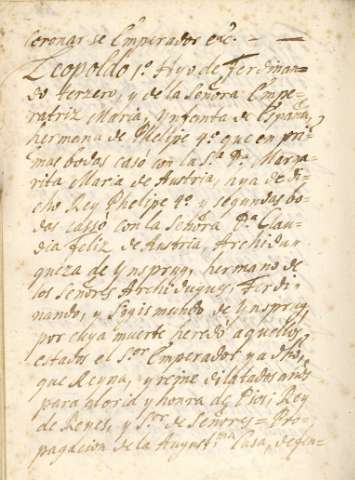 Coronarse Emperador &c.ª — —
Leopoldo 1º Hijo de Ferdinan-
do terzero, y de la Señora Empe-
ratriz Maria, Ynfanta de España,
hermana de Phelipe 4º que en pri-
mas bodas casò con la S.ª D.ª Marga-
rita Maria de Austria, aya de di-
cho Rey Phelipe 4º y segundas bo-
das cassò con la Señora D.ª Clau-
dia feliz de Austria, Archidu-
queza de Ynsprug, hermano de
los señores Archiduques, Ferdi-
nando, y Sogismundo de Ynsprug
por cuya muerte heredò aquellos
estados el S.or Emperador ya dho,
que Reyna, y reine dilatados años
para gloria y honra de Dios, Rey
de Reyes, y S.or de Señores = Pro-
pagacion de la August.ma Casa, defen-